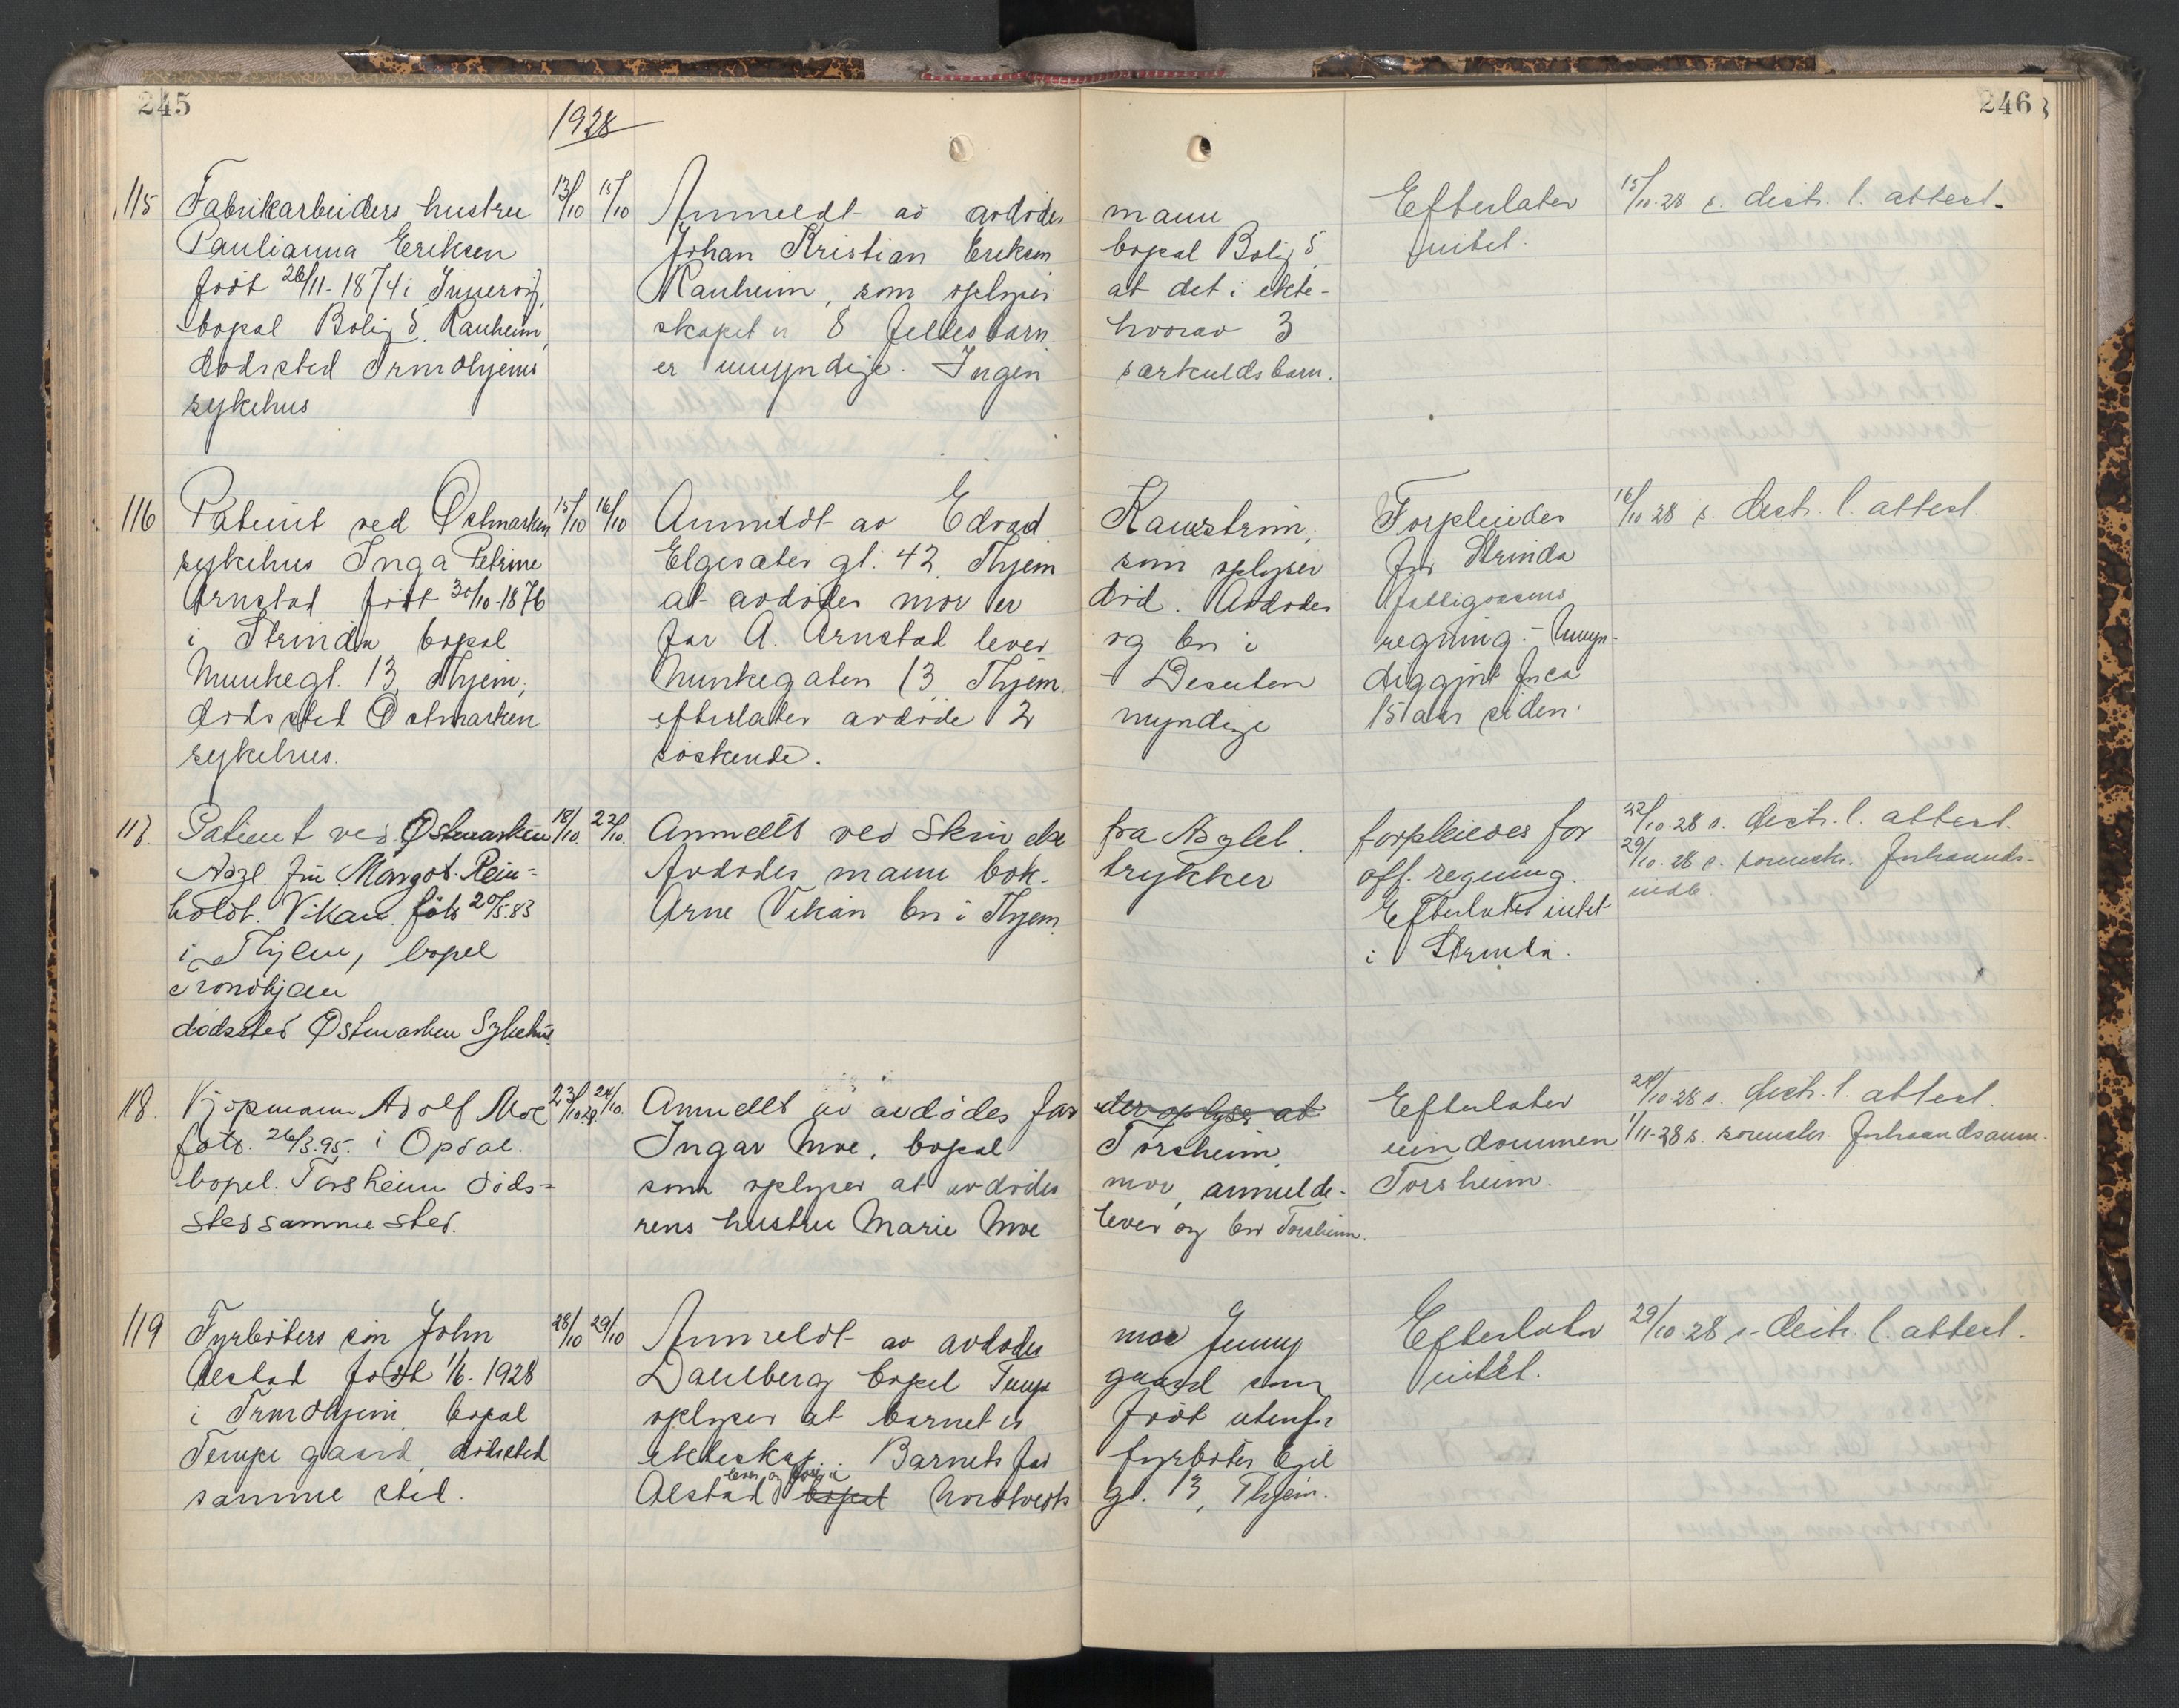 245
246
1928
115 Fabrikarbeiders hustru 13/10 15/10 Anmeldt av avdødes mann Efterlater 15/10.28 s. distr. l. attest.
Paulianna Eriksen Johan Kristian Eriksen bopæl Bolig 5, intet.
født 26/11-1874 i Inderøy, Ranheim, som oplyser at det i ekte-
bopæl Bolig 5, Ranheim, skapet er 8 fellesbarn hvorav 3
dødssted Trondhjems er umyndige. Ingen særkuldsbarn.
sykehus
116 Patient ved Østmarken 15/10 16/10 Anmeldt av Edvard Forpleiedes 16/10 28 s. distr. l. attest.
sykehus Inga Petrine Elgesæter gt. 42, Thjem som oplyser for Strinda
Arnstad født 30/10-1876 at avdødes mor er død. Avdødes fattigvæsens
i Strinda bopæl far A. Arnstad lever og bor i regning. - Umyn-
Munkegt. 13 Thjem, Munkegaten 13, Thjem. - Desuten diggjort for ca
dødssted Østmarken efterlater avdøde 2 myndige 15 aar siden.
sykehus. søskende.
117. Patient ved Østmarken 18/10. 22/10. Anmeldt ved Skriv else fra Asylet. forpleiedes for 22/10.28 s. distr. l. attest.
Asyl. fru Margot Rein- Avdødes mann bok- trykker off. regning. 29/10.28 s. sorenskr. forhaands-
holdt Vikan født 20/5.83 Arne Vikan bor i Thjem. Efterlater intet indb.
i Thjem, bopel i Strinda.
Trondhjem
dødssted Østmarken Sykehus.
118. Kjøpmann Adolf Moe 23/10.28. 24/10. Anmeldt av avdødes far der oplyser at Efterlater 24/10.28 s. distr. l. attest.
født. 26/3.95. i Opdal. Ingar Moe, bopæl Torsheim, eiendommen 1/11-28 s. sorenskr. forhaandsanm.
bopel. Torsheim døds- som oplyser at avdødes mor, anmelde- Torsheim.
sted samme sted. rens hustru Marie Moe lever og bor Torsheim.
119 Fyrbøters søn John 28/10 29/10 Anmeldt av avdødes mor Jenny Efterlater 29/10.28 s. distr. l. attest.
Alstad født 1/6. 1928 Dahlberg bopel Tempe gaard som intet.
i Trondhjem bopæl oplyser at barnet er født utenfor
Tempe gaard, dødssted ekteskap. Barnets far fyrbøter Egil
samme sted. Alstad lever og bor i bopæl Nordtvedts gt. 13, Thjem.